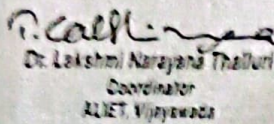 Dr. Lakshmi Narayana Thalluri
Coordinator
ALIET, Vijayawada